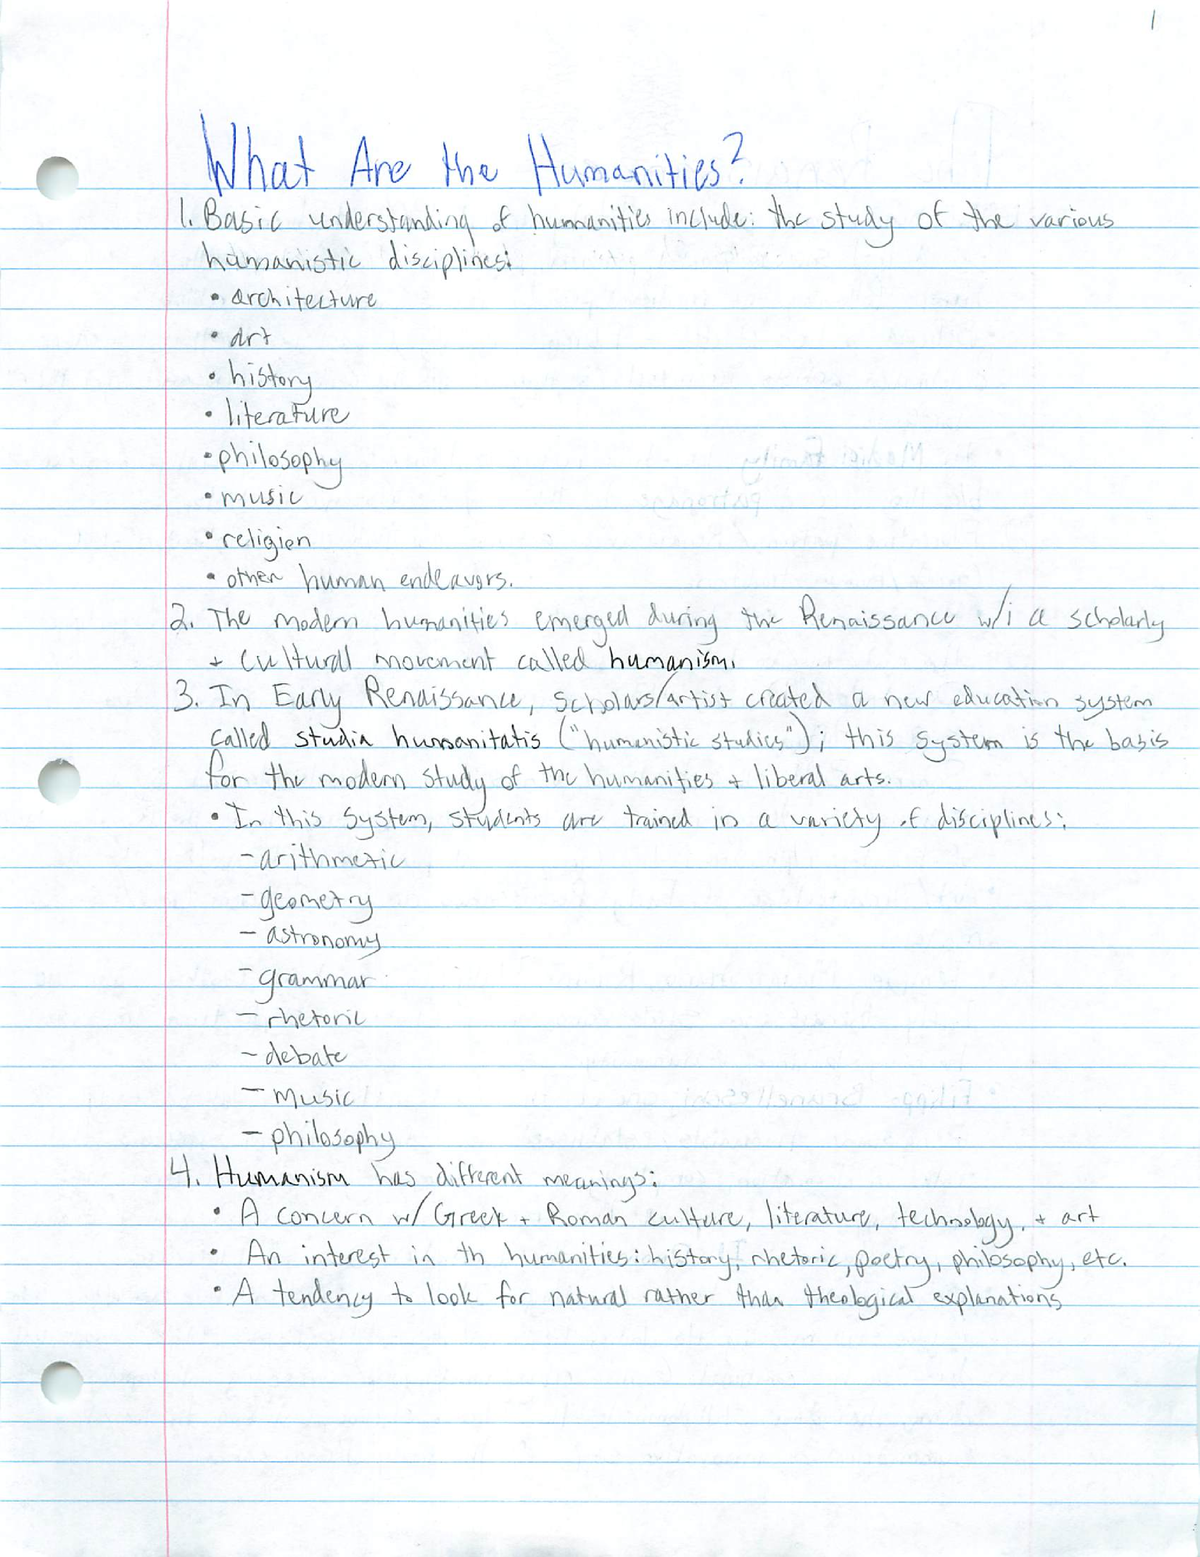 1
What Are the Humanities?
1. Basic understanding of humanities include: the study of the various
humanistic disciplines:
• architecture
• art
• history
• literature
• philosophy
• music
• religion
• other human endeavors.
2. The modern humanities emerged during the Renaissance w/i a scholarly
+ cultural movement called humanism.
3. In Early Renaissance, Scholars/artist created a new education system
called studia humanitatis ("humanistic studies"); this system is the basis
for the modern study of the humanities + liberal arts.
• In this system, students are trained in a variety of disciplines:
- arithmetic
- geometry
- astronomy
- grammar
- rhetoric
- debate
- music
- philosophy
4. Humanism has different meanings:
• A concern w/ Greek + Roman culture, literature, technology, + art
• An interest in th humanities: history, rhetoric, poetry, philosophy, etc.
• A tendency to look for natural rather than theological explanations